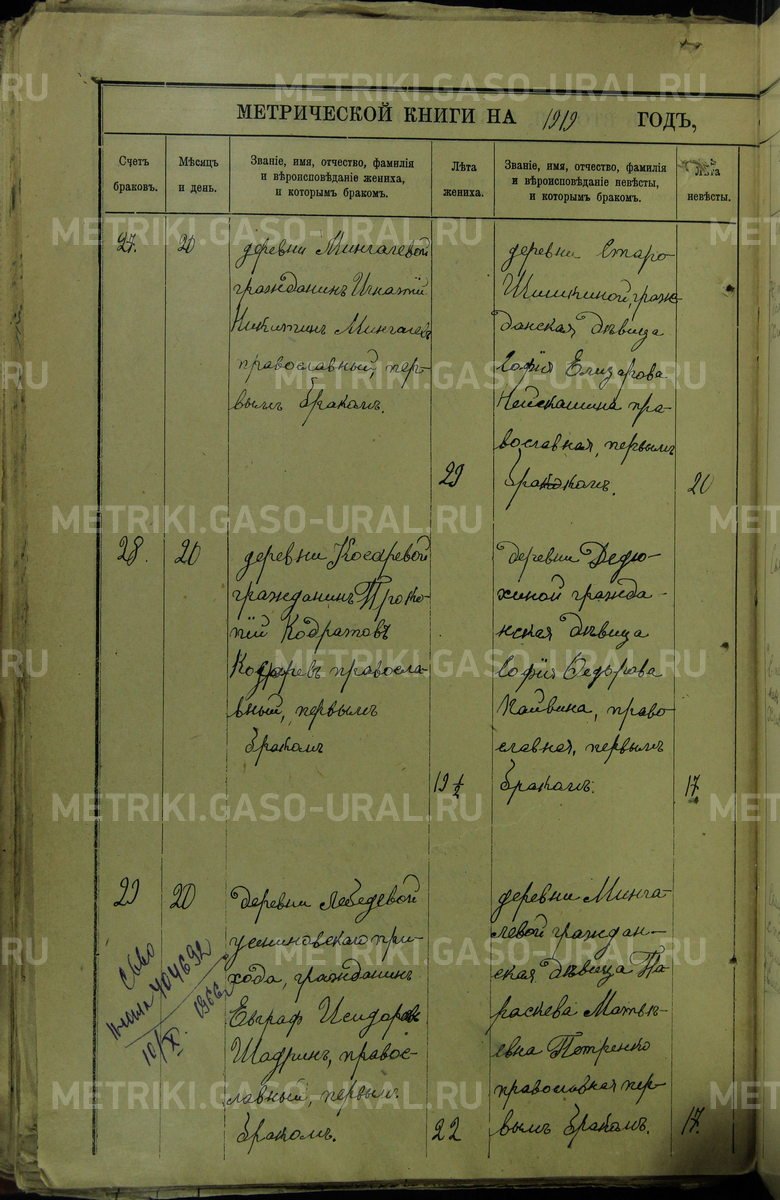 МЕТРИЧЕСКОЙ КНИГИ НА 1919 ГОДЪ,
Счетъ браковъ.
Мѣсяцъ и день.
Званіе, имя, отчество, фамилія
и вѣроисповѣданіе жениха,
и которымъ бракомъ.
Лѣта жениха.
Званіе, имя, отчество, фамилія
и вѣроисповѣданіе невѣсты,
и которымъ бракомъ.
Лѣта невѣсты.
27.
20
деревни Мингалевой
гражданинъ Игнатій
Никитинъ Мингалевъ
православный, пер-
вымъ бракомъ.
29
деревни Старо
Шишкиной, граж-
данская дѣвица
Софія Елизарова
православная, первымъ
бракомъ.
20
28.
20
деревни Косаревой
гражданинъ Проко-
пій Кодратовъ
Косаревъ правосла-
вный, первымъ
бракомъ
19 1/2
деревни Дедю-
хиной гражда-
нская дѣвица
Софія Федорова
Пайвина, право-
славная, первымъ
бракомъ.
17.
29
20
деревни Лебедевой
усминовскаго при-
хода, гражданинъ
Евграф Исидоровъ
Шадринъ, правос-
лавный, первым.
бракомъ.
22
деревни Минга-
левой граждан-
ская дѣвица Па-
раскева Матвѣ-
евна Петренко
православная пер-
вымъ бракомъ.
17.
404692
10/X. 1956 г
METRIKI.GASO-URAL.RU